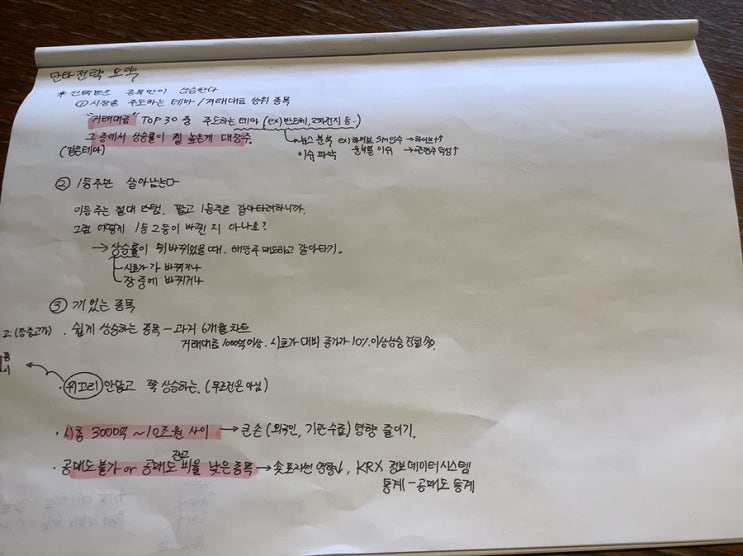 단타전략 요약
* 선택받은 종목만이 상승한다
① 시장을 주도하는 테마/거래대금 상위 종목
"거래대금" TOP 30 중 주도하는 테마 (ex) 반도체, 2차전지 등)
그 중에서 상승률이 제일 높은게 대장주.
(같은테마)
뉴스 분석 ex) 하이브 SM인수 → 하이브↑↑
이슈 파악 윤석열 이슈 → 관련주 덕성↑
② 1등주만 살아남는다
이등주는 절대 안됨. 팔고 1등주로 갈아타려하니까.
그럼 어떻게 1등 2등이 바뀐 지 아나요?
→ 상승률이 뒤바뀌었을 때. 해당주 매도하고 갈아타기.
시초가가 바뀌거나
장중에 바뀌거나
③ 끼있는 종목
고 (장중고가) · 쉽게 상승하는 종목 - 과거 6개월 차트
거래대금 1000억이상. 시초가 대비 종가가 10%이상상승
종
시
윗꼬리 안달고 쭉 상승하는. (무조건은 아님)
· 시총 3000억 ~10조원 사이 → 큰손 (외국인, 기관수급) 영향 줄이기.
· 공매도불가 or 공매도 잔고 비율 낮은종목 → 숏포지션 영향↓, KRX 정보데이터시스템
통계 - 공매도 통계